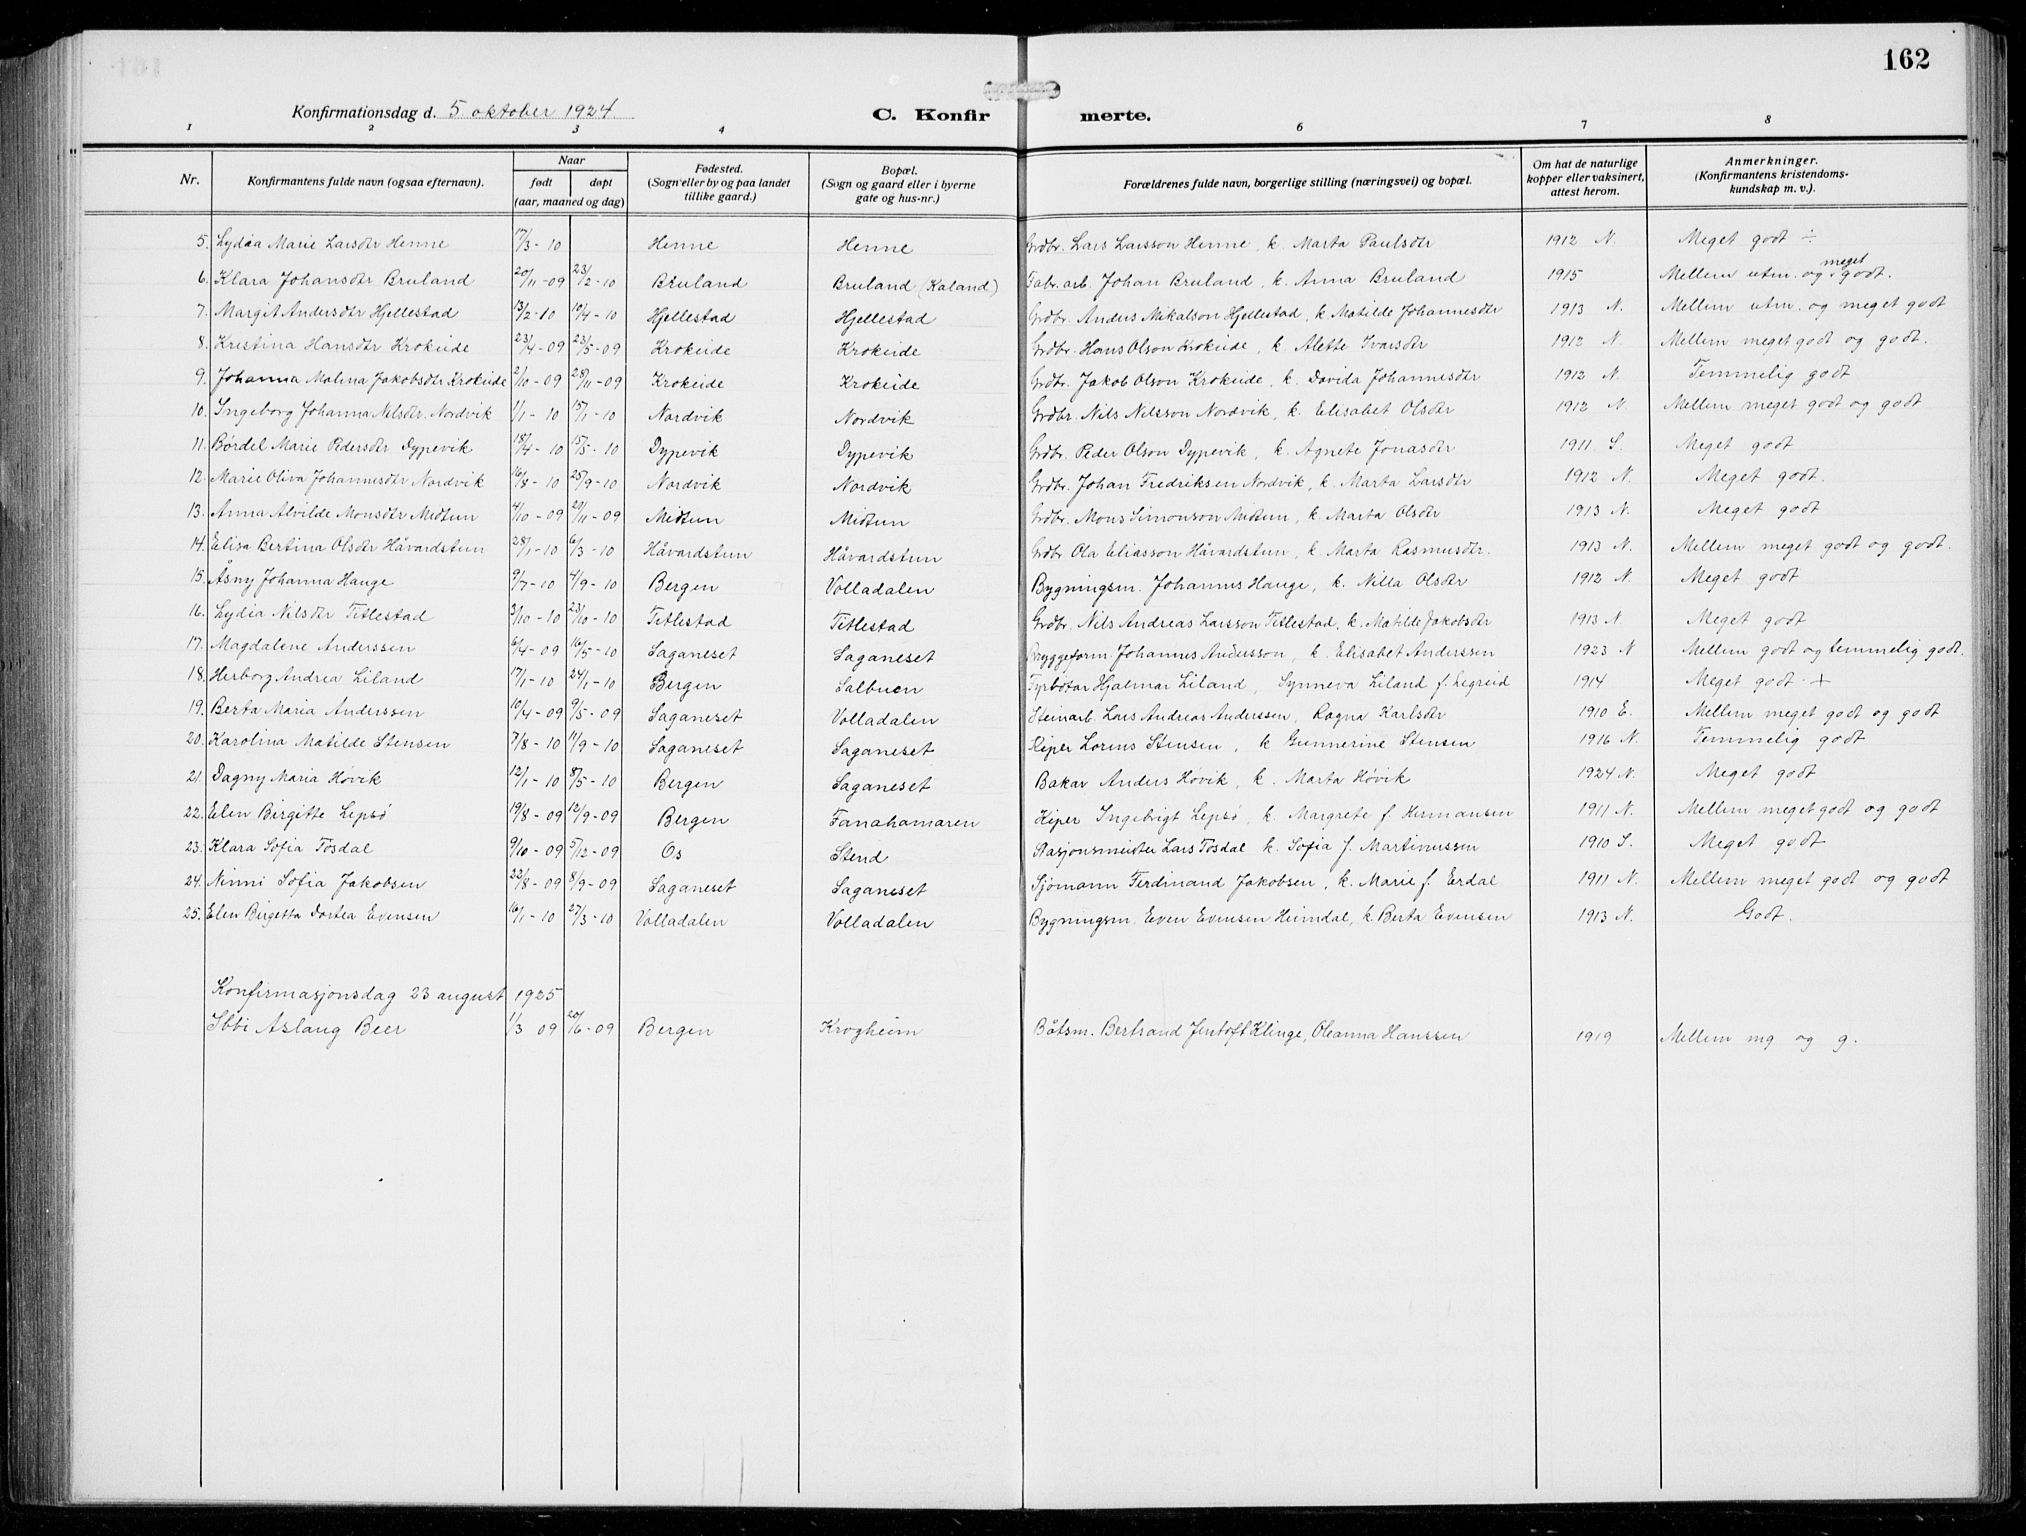 162
Konfirmationsdag d. 5 oktober 1924 C. Konfir merte.
1 2 3 4 6 7 8
Nr. Konfirmantens fulde navn (ogsaa efternavn). Naar født døpt (aar, maaned og dag) Fødested. (Sogn eller by og paa landet tillike gaard.) Bopæl. (Sogn og gaard eller i byerne gate og hus-nr.) Forældrenes fulde navn, borgerlige stilling (næringsvei) og bopæl. Om hat de naturlige kopper eller vaksinert, attest herom. Anmerkninger. (Konfirmantens kristendoms-kundskap m. v.)
5. Lydia Marie Larsdtr Henne 17/3-10 Henne Henne Grdbr. Lars Larsson Henne, k. Marta Paulsdtr 1912 N. Meget godt ÷
6. Klara Johansdtr Bruland 20/11-09 23/2-10 Bruland Bruland (Kaland) Fabr. arb. Johan Bruland, k. Anna Bruland 1915 Mellem utm. og meget godt.
7. Margit Andersdtr Hjellestad 13/2-10 10/4-10 Hjellestad Hjellestad Grdbr. Anders Mikalson Hjellestad, k. Matilde Johannesdtr 1913 N. Mellem utm. og meget godt
8. Kristina Hansdtr Krokeide 23/4-09 23/5-09 Krokeide Krokeide Grdbr. Hans Olson Krokeide, k. Alette Ivarsdtr 1912 N. Mellem meget godt og godt.
9. Johanna Malina Jakobsdtr Krokeide 2/10-09 28/11-09 Krokeide Krokeide Grdbr. Jakob Olson Krokeide, k. Davida Johannesdtr 1912 N. Temmelig godt
10. Ingeborg Johanna Nilsdtr. Nordvik 1/1-10 15/1-10 Nordvik Nordvik Grdbr. Nils Nilsson Nordvik, k. Elisabet Olsdtr 1912 N. Mellem meget godt og godt
11. Børdel Marie Pedersdtr Dypevik 18/4-10 15/5-10 Dypevik Dypevik Grdbr. Peder Olson Dypevik, k. Agnete Jonasdtr 1911 S. Meget godt
12. Marie Oliva Johannesdtr Nordvik 16/8-10 25/9-10 Nordvik Nordvik Grdbr. Johan Fredriksen Nordvik, k. Marta Larsdtr 1912 N. Meget godt.
13. Anna Alvilde Monsdtr Midtun 4/10-09 /11-09 Midtun Midtun Grdbr. Mons Simonson Midtun, k. Marta Olsdtr 1913 N. Meget godt
14. Elisa Bertina Olsdtr Håvardstun 28/1-10 6/3-10 Håvardstun Håvardstun Grdbr Ola Eliasson Håvardstun, k. Marta Rasmusdtr. 1913 N. Mellem meget godt og godt.
15. Åsny Johanna Hauge 9/7-10 4/9-10 Bergen Volladalen Bygningsm. Johannes Hauge, k. Nilla Olsdtr 1912 N. Meget godt
16. Lydia Nilsdtr Titlestad 3/10-10 23/10-10 Titlestad Titlestad Grdbr. Nils Andreas Larsson Titlestad, k. Matilde Jakobsdtr 1913 N. Meget godt
17. Magdalene Anderssen 6/4-09 16/5-10 Saganeset Saganeset Bryggeform. Johannes Andersson, k. Elisabet Anderssen 1923 N Mellem godt og temmelig godt.
18. Herborg Andrea Liland 17/1-10 24/1-10 Bergen Salbuen Fyrbøtar Hjalmar Liland, Synneva Liland f. Legreid 1914 Meget godt +
19. Berta Maria Anderssen 10/4-09 9/5-09 Saganeset Volladalen Steinarb. Lars Andreas Anderssen, Ragna Karlsdtr 1910 E. Mellem meget godt og godt
20. Karolina Matilde Stensen 7/8-10 11/9-10 Saganeset Saganeset Kiper Lorens Stensen, k Gunnerine Stensen 1916 N. Temmelig godt
21. Dagny Maria Høvik 12/1-10 8/5-10 Bergen Saganeset Bakar Anders Høvik, k. Marta Høvik 1924 N. Meget godt
22. Elen Birgitte Lepsø 19/8-09 12/9-09 Bergen Fanahamaren Kiper Ingebrigt Lepsø, k. Margrete f. Hermansen 1911 N. Mellem meget godt og godt
23. Klara Sofia Tøsdal 9/10-09 5/12-09 Os Stend Stasjonsmeister Lars Tøsdal k. Sofia f. Martinussen 1910 S. Meget godt
24. Ninni Sofia Jakobsen 22/8-09 8/9-09 Saganeset Saganeset Sjømann Ferdinand Jakobsen, k. Marie f. Erdal 1911 N. Mellem meget godt og godt
25. Elen Birgetta Dortea Evensen 16/1-10 27/3-10 Volladalen Volladalen Bygningsm. Even Evensen Heimdal, k. Berta Evensen 1913 N. Godt.
Konfirmasjonsdag 23 august 1925
Ibbi Aslaug Beer 1/3 09 20/6-09 Bergen Krogheim Båtsm. Bertrand Jentoft Klinge, Oleanna Hanssen 1919 Mellem mg og g.